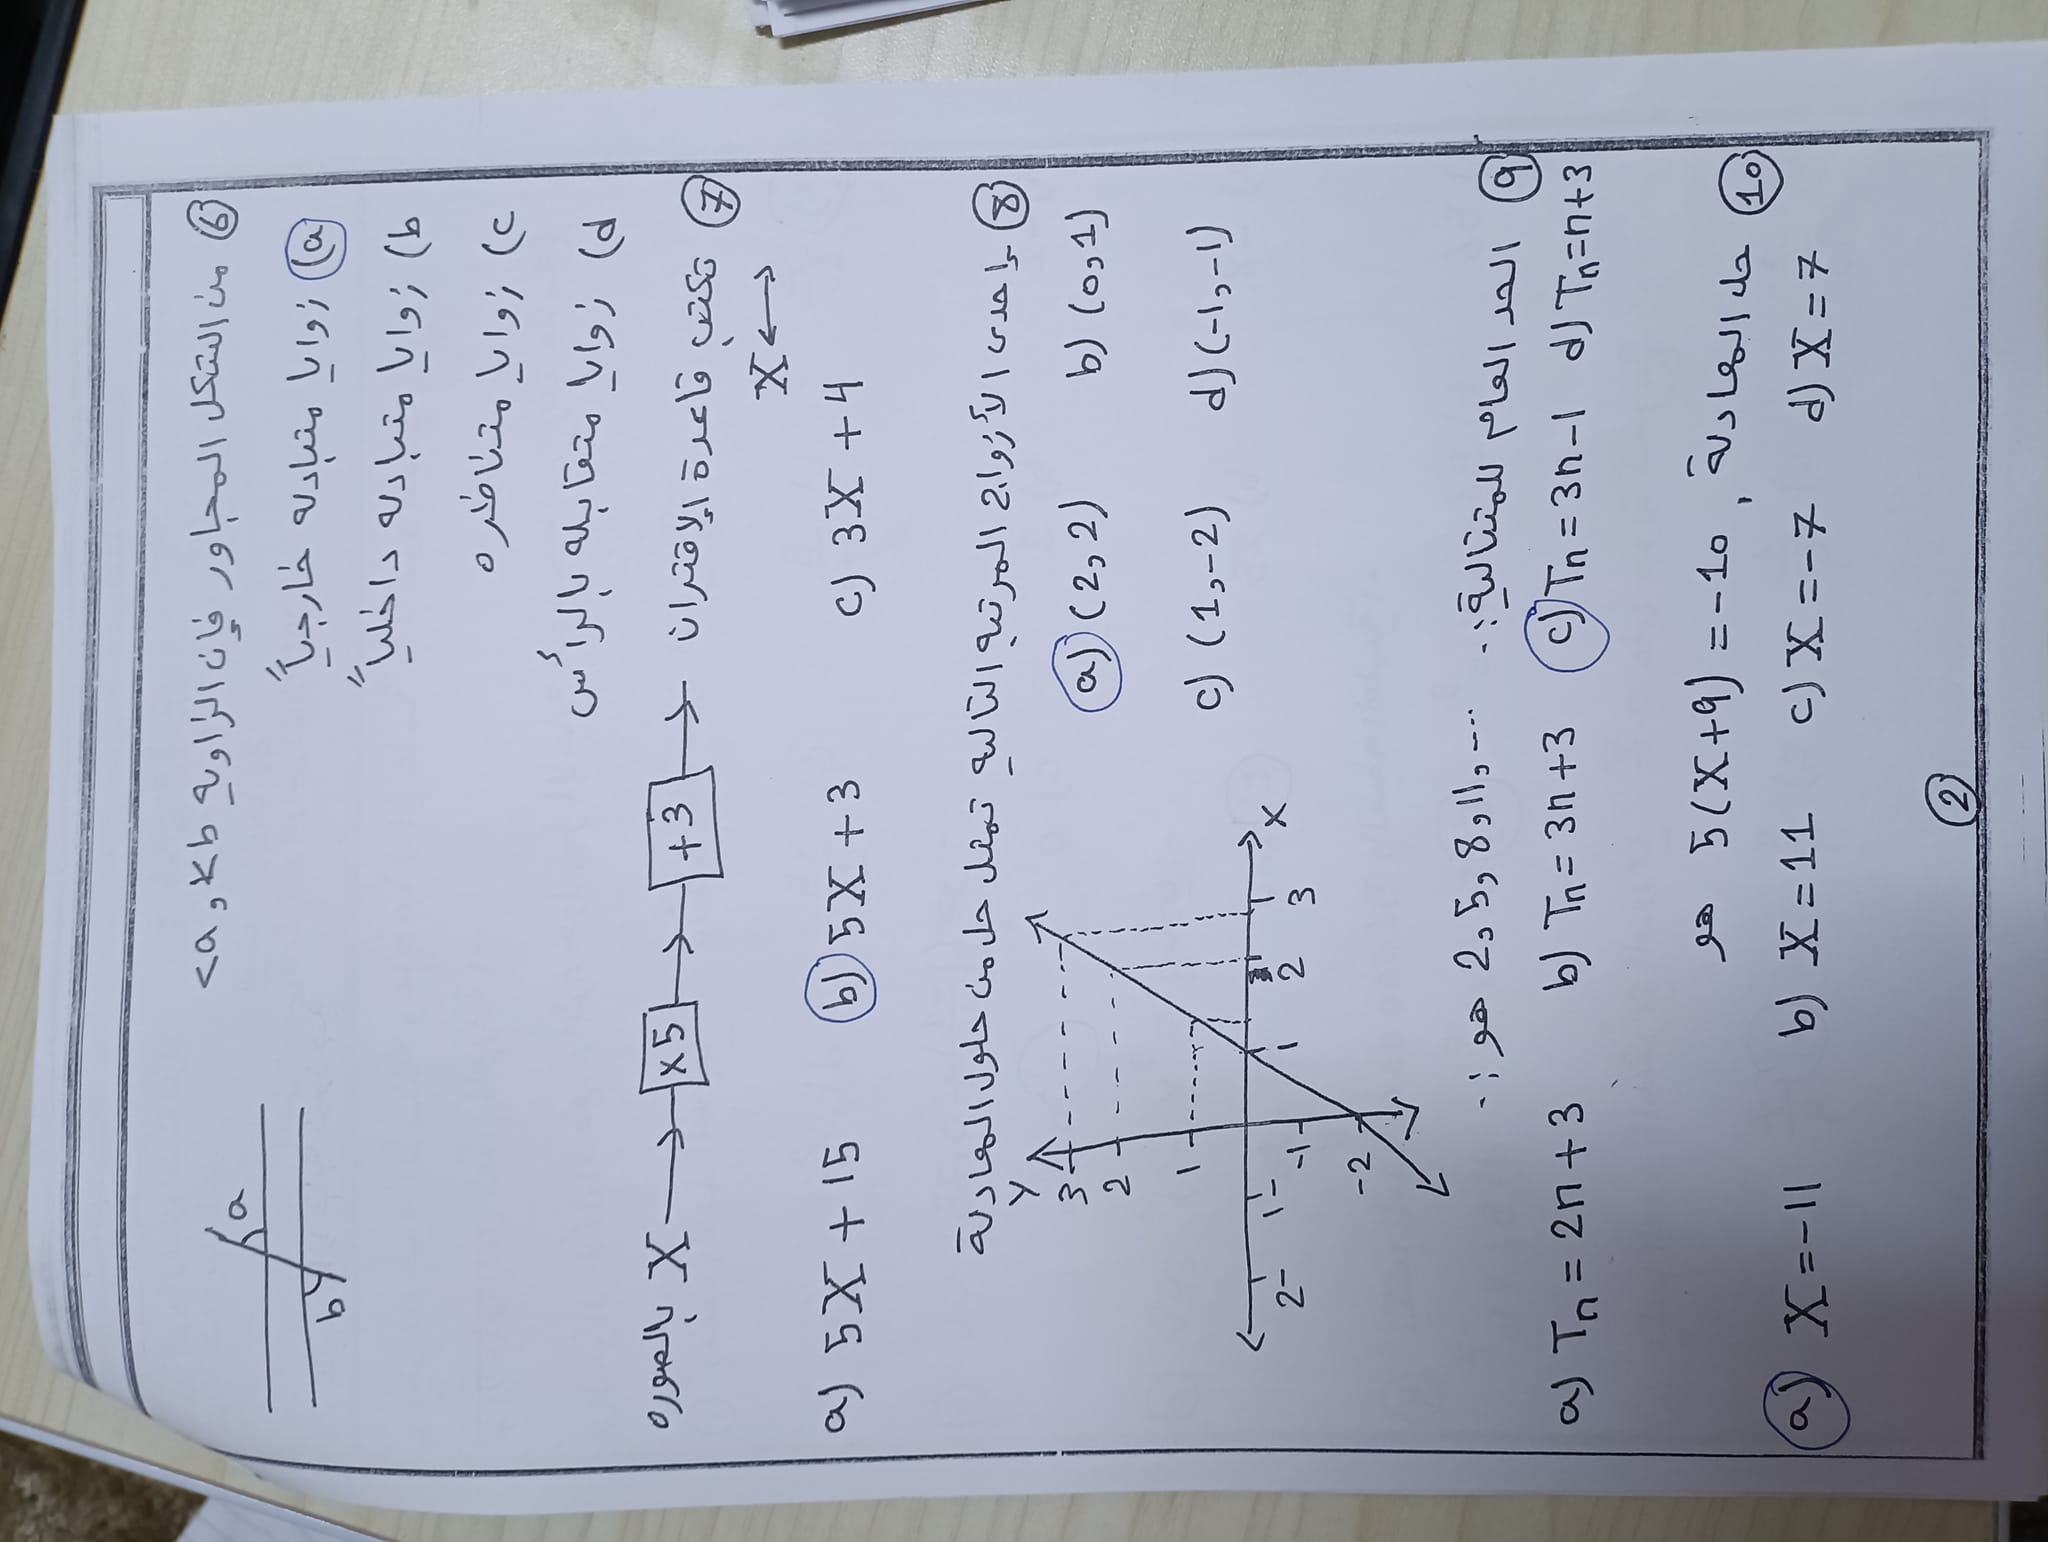 ⑥ من الشكل المجاور فإن الزاويه <a و <b
a) زوايا متبادله خارجياً
b) زوايا متبادله داخلياً
c) زوايا متناظره
d) زوايا متقابله بالرأس
a
b
⑦ تكتب قاعدة الإقتران → +3 → ×5 → X بالصوره
X ↔
a) 5X + 15 b) 5X + 3 c) 3X + 4
⑧ إحدى الأزواج المرتبه التاليه تمثل حل من حلول المعادلة
a) (2,2) b) (0,1)
c) (1,-2) d) (-1,-1)
Y
3
2
1
-1
-2
2- 1- 1 2 3 X
⑨ الحد العام للمتتالية: 2,5,8,11,... هو:
a) Tn = 2n + 3 b) Tn = 3n+3 c) Tn = 3n-1 d) Tn = n+3
⑩ حل المعادلة, 5(X+9) = -10 هو
a) X = -11 b) X = 11 c) X = -7 d) X = 7
②